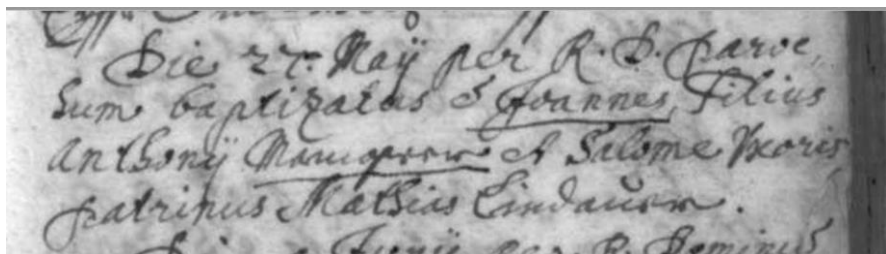 Die 27. Maÿ per R. D. Paro¬
hum baptizatus ē Joannes, Filius
Anthonÿ et Salome Vxoris
patrinus Mathias Lindauer.
Junÿ per R. Dominū